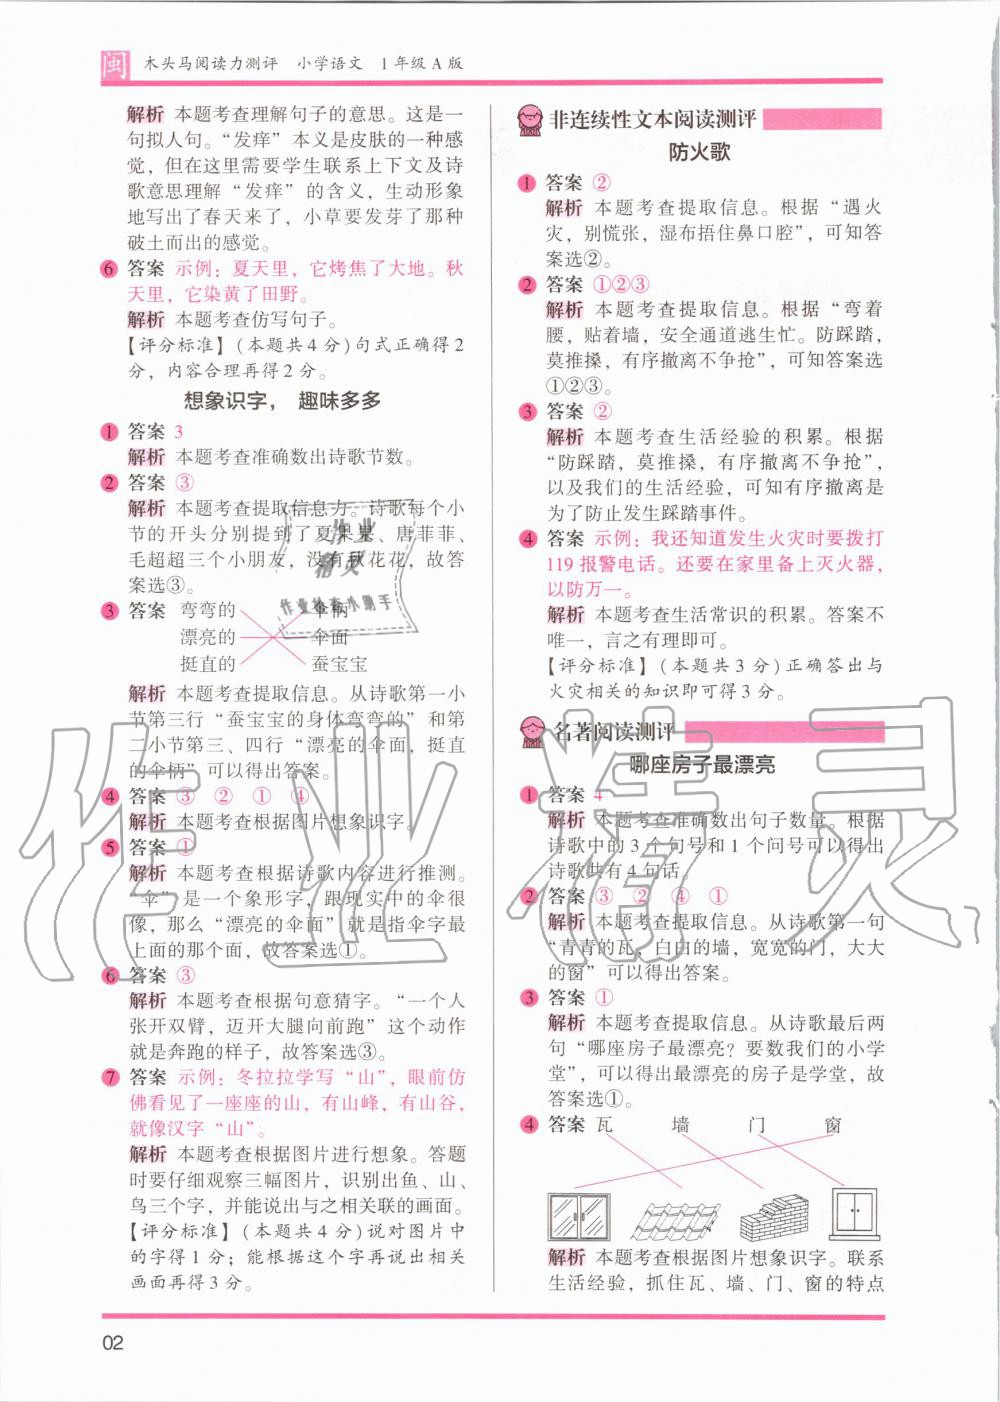 闽 木头马阅读力测评 小学语文 1年级A版
解析 本题考查理解句子的意思。这是一
句拟人句。“发痒”本义是皮肤的一种感
觉，但在这里需要学生联系上下文及诗
歌意思理解“发痒”的含义，生动形象
地写出了春天来了，小草要发芽了那种
破土而出的感觉。
6 答案 示例：夏天里，它烤焦了大地。秋
天里，它染黄了田野。
解析 本题考查仿写句子。
【评分标准】（本题共4分）句式正确得2
分，内容合理再得2分。
想象识字， 趣味多多
1 答案 3
解析 本题考查准确数出诗歌节数。
2 答案 ③
解析 本题考查提取信息力。诗歌每个小
节的开头分别提到了夏果果、唐菲菲、
毛超超三个小朋友，没有秋花花，故答
案选③。
3 答案 弯弯的 伞柄
漂亮的 伞面
挺直的 蚕宝宝
解析 本题考查提取信息。从诗歌第一小
节第三行“蚕宝宝的身体弯弯的”和第
二小节第三、四行“漂亮的伞面，挺直
的伞柄”可以得出答案。
4 答案 ③ ② ① ④
解析 本题考查根据图片想象识字。
5 答案 ①
解析 本题考查根据诗歌内容进行推测。
“伞”是一个象形字，跟现实中的伞很
像，那么“漂亮的伞面”就是指伞字最
上面的那个面，故答案选①。
6 答案 ③
解析 本题考查根据句意猜字。“一个人
张开双臂，迈开大腿向前跑”这个动作
就是奔跑的样子，故答案选③。
7 答案 示例：冬拉拉学写“山”，眼前仿
佛看见了一座座的山，有山峰，有山谷，
就像汉字“山”。
解析 本题考查根据图片进行想象。答题
时要仔细观察三幅图片，识别出鱼、山、
鸟三个字，并能说出与之相关联的画面。
【评分标准】（本题共4分）说对图片中
的字得1分；能根据这个字再说出相关
画面再得3分。
非连续性文本阅读测评
防火歌
1 答案 ②
解析 本题考查提取信息。根据“遇火
灾，别慌张，湿布捂住鼻口腔”，可知答
案选②。
2 答案 ①②③
解析 本题考查提取信息。根据“弯着
腰，贴着墙，安全通道逃生忙。防踩踏，
莫推搡，有序撤离不争抢”，可知答案选
①②③。
3 答案 ②
解析 本题考查生活经验的积累。根据
“防踩踏，莫推搡，有序撤离不争抢”，
以及我们的生活经验，可知有序撤离是
为了防止发生踩踏事件。
4 答案 示例：我还知道发生火灾时要拨打
119报警电话。还要在家里备上灭火器，
以防万一。
解析 本题考查生活常识的积累。答案不
唯一，言之有理即可。
【评分标准】（本题共3分）正确答出与
火灾相关的知识即可得3分。
名著阅读测评
哪座房子最漂亮
1 答案 4
解析 本题考查准确数出句子数量。根据
诗歌中的3个句号和1个问号可以得出
诗歌共有4句话。
2 答案 ③ ② ④ ①
解析 本题考查提取信息。从诗歌第一句
“青青的瓦，白白的墙，宽宽的门，大大
的窗”可以得出答案。
3 答案 ①
解析 本题考查提取信息。从诗歌最后两
句“哪座房子最漂亮？要数我们的小学
堂”，可以得出最漂亮的房子是学堂，故
答案选①。
4 答案 瓦 墙 门 窗
解析 本题考查根据图片想象识字。联系
生活经验，抓住瓦、墙、门、窗的特点
02
作业精灵
作业
精灵
作业检查小助手